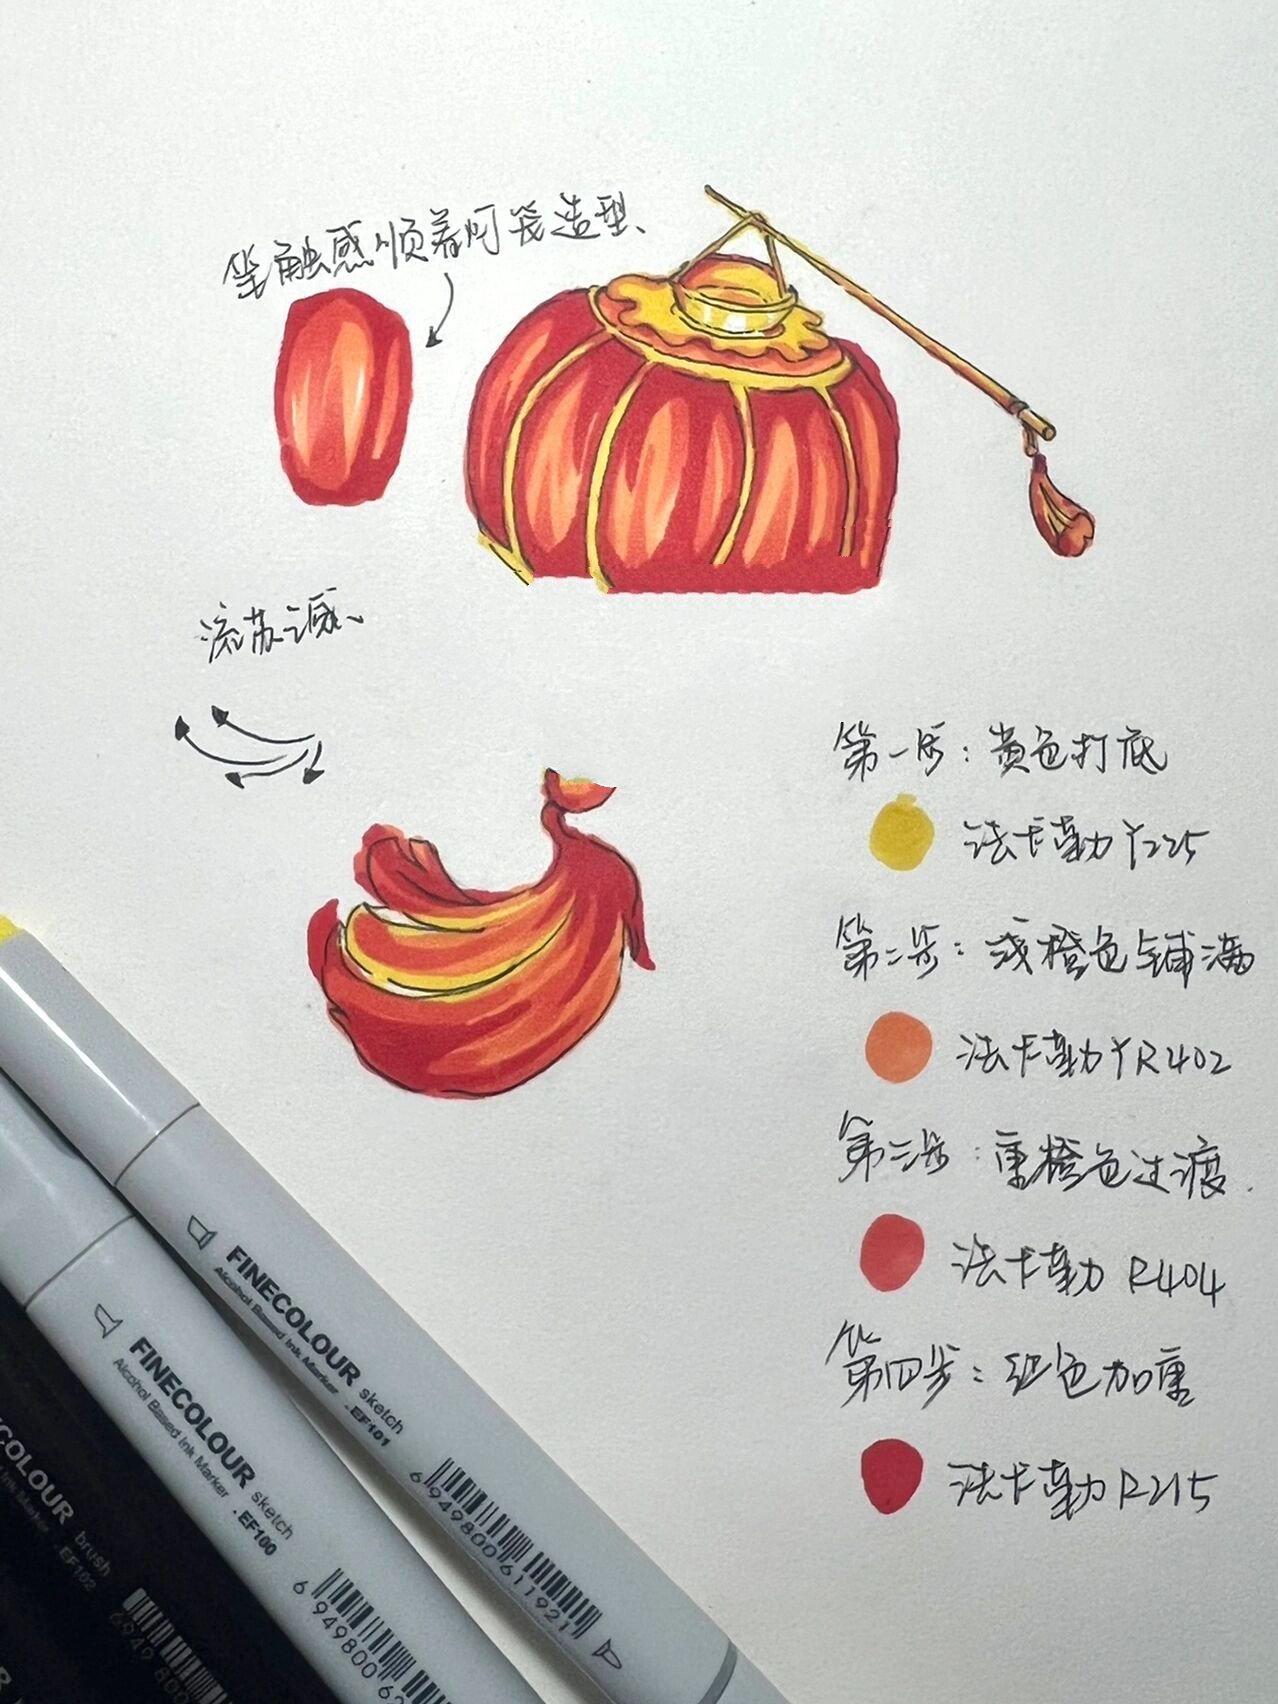 笔触感顺着灯笼造型、
流苏之感、
第一步：黄色打底
法卡勒 Y225
第二步：浅橙色铺满
法卡勒 YR402
第三步：重橙色过渡.
法卡勒 R404
第四步：红色加重
法卡勒 R215
FINECOLOUR sketch
Alcohol Based Ink Marker .EF101
6 949800 611921
FINECOLOUR sketch
Alcohol Based Ink Marker .EF100
6 949800 6
COLOUR brush
Ink Marker .EF102
6949 800